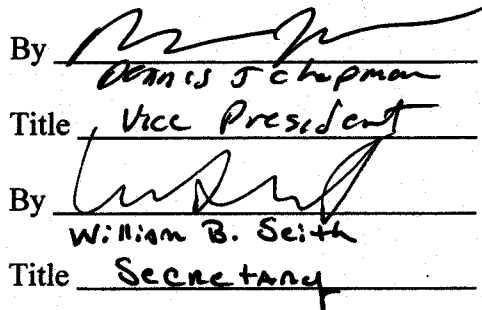 By
Dennis J Chapman
Title Vice President
By
William B. Seith
Title Secretary